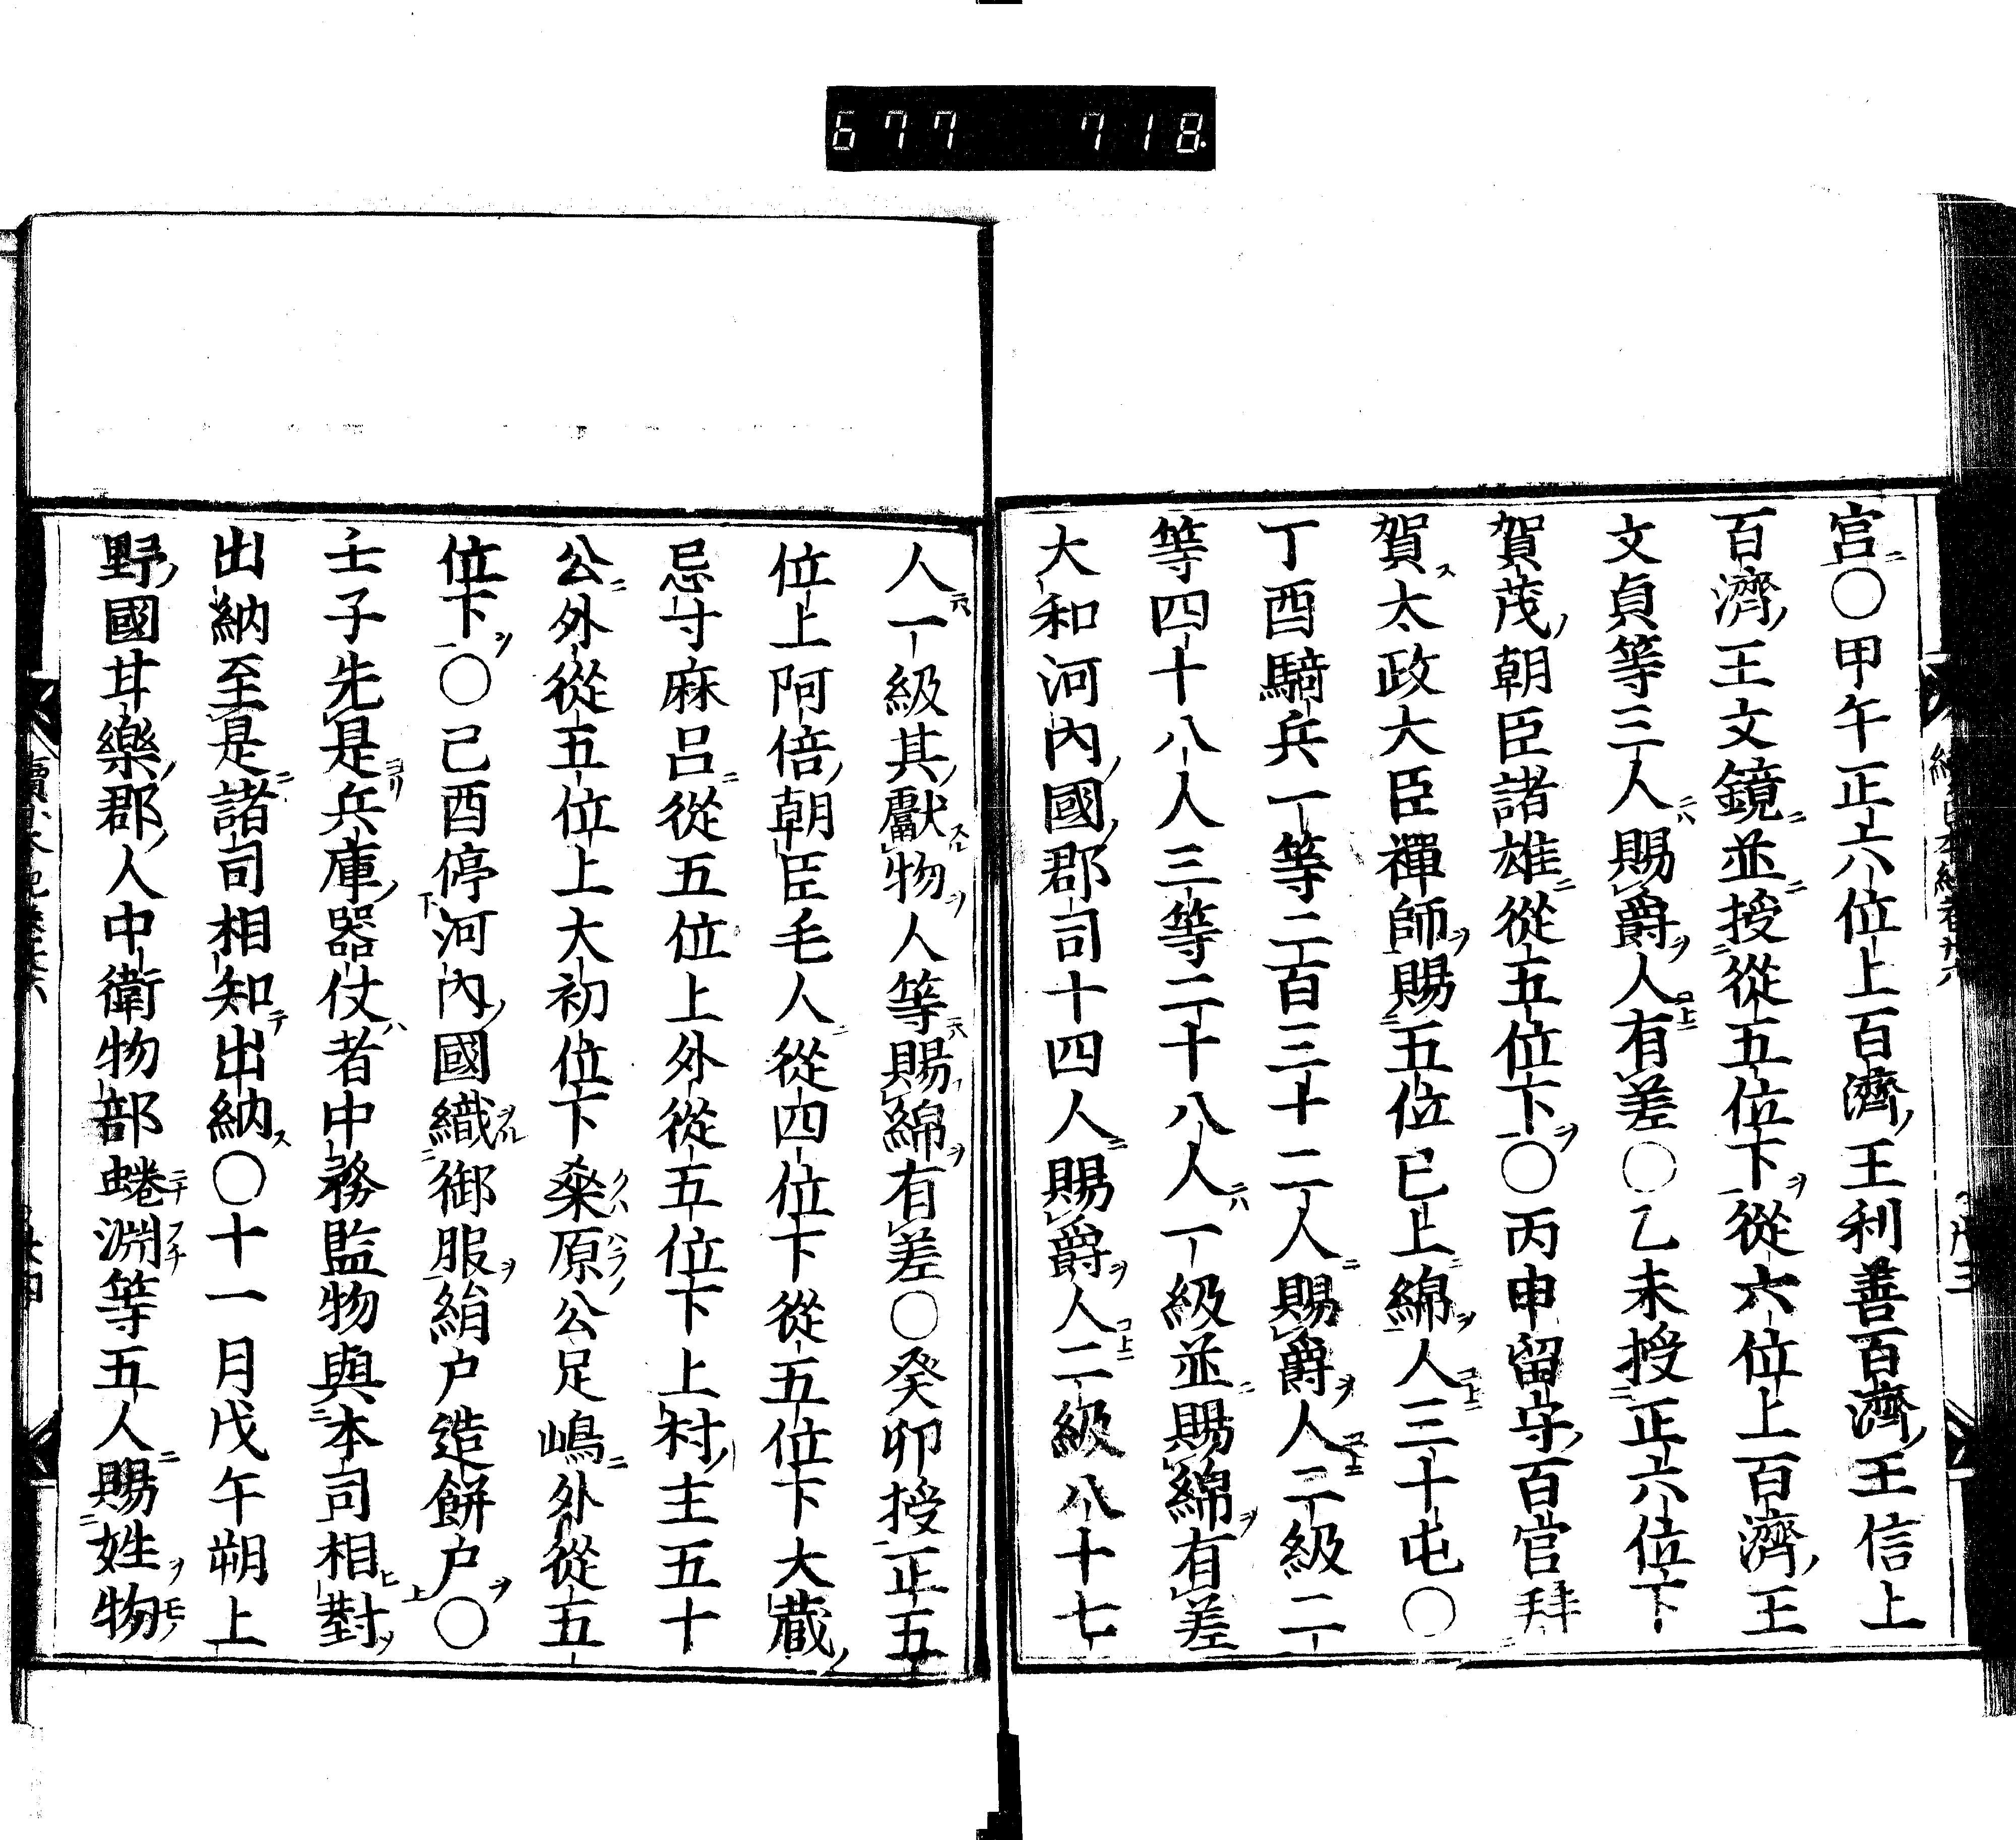 677 718
宮○甲午正六位上百濟王利善百濟王信上
百濟王文鏡並授從五位下從六位上百濟王
文貞等三人賜爵人有差○乙未授正六位下
賀茂朝臣諸雄從五位下○丙申留守百官拜
賀太政大臣禪師賜五位已上綿人三十屯○
丁酉騎兵一等二百三十二人賜爵人二級二
等四十八人三等二十八人一級並賜綿有差
大和河內國郡司十四人賜爵人二級八十七
人一級其獻物人等賜綿有差○癸卯授正五
位上阿倍朝臣毛人從四位下從五位下大藏
忌寸麻呂從五位上外從五位下上村主五十
公外從五位上大初位下桒原公足嶋外從五
位下○己酉停河內國織御服絹戶造餅戶○
壬子先是兵庫器仗者中務監物與本司相對
出納至是諸司相知出納○十一月戊午朔上
野國甘樂郡人中衛物部蜷淵等五人賜姓物